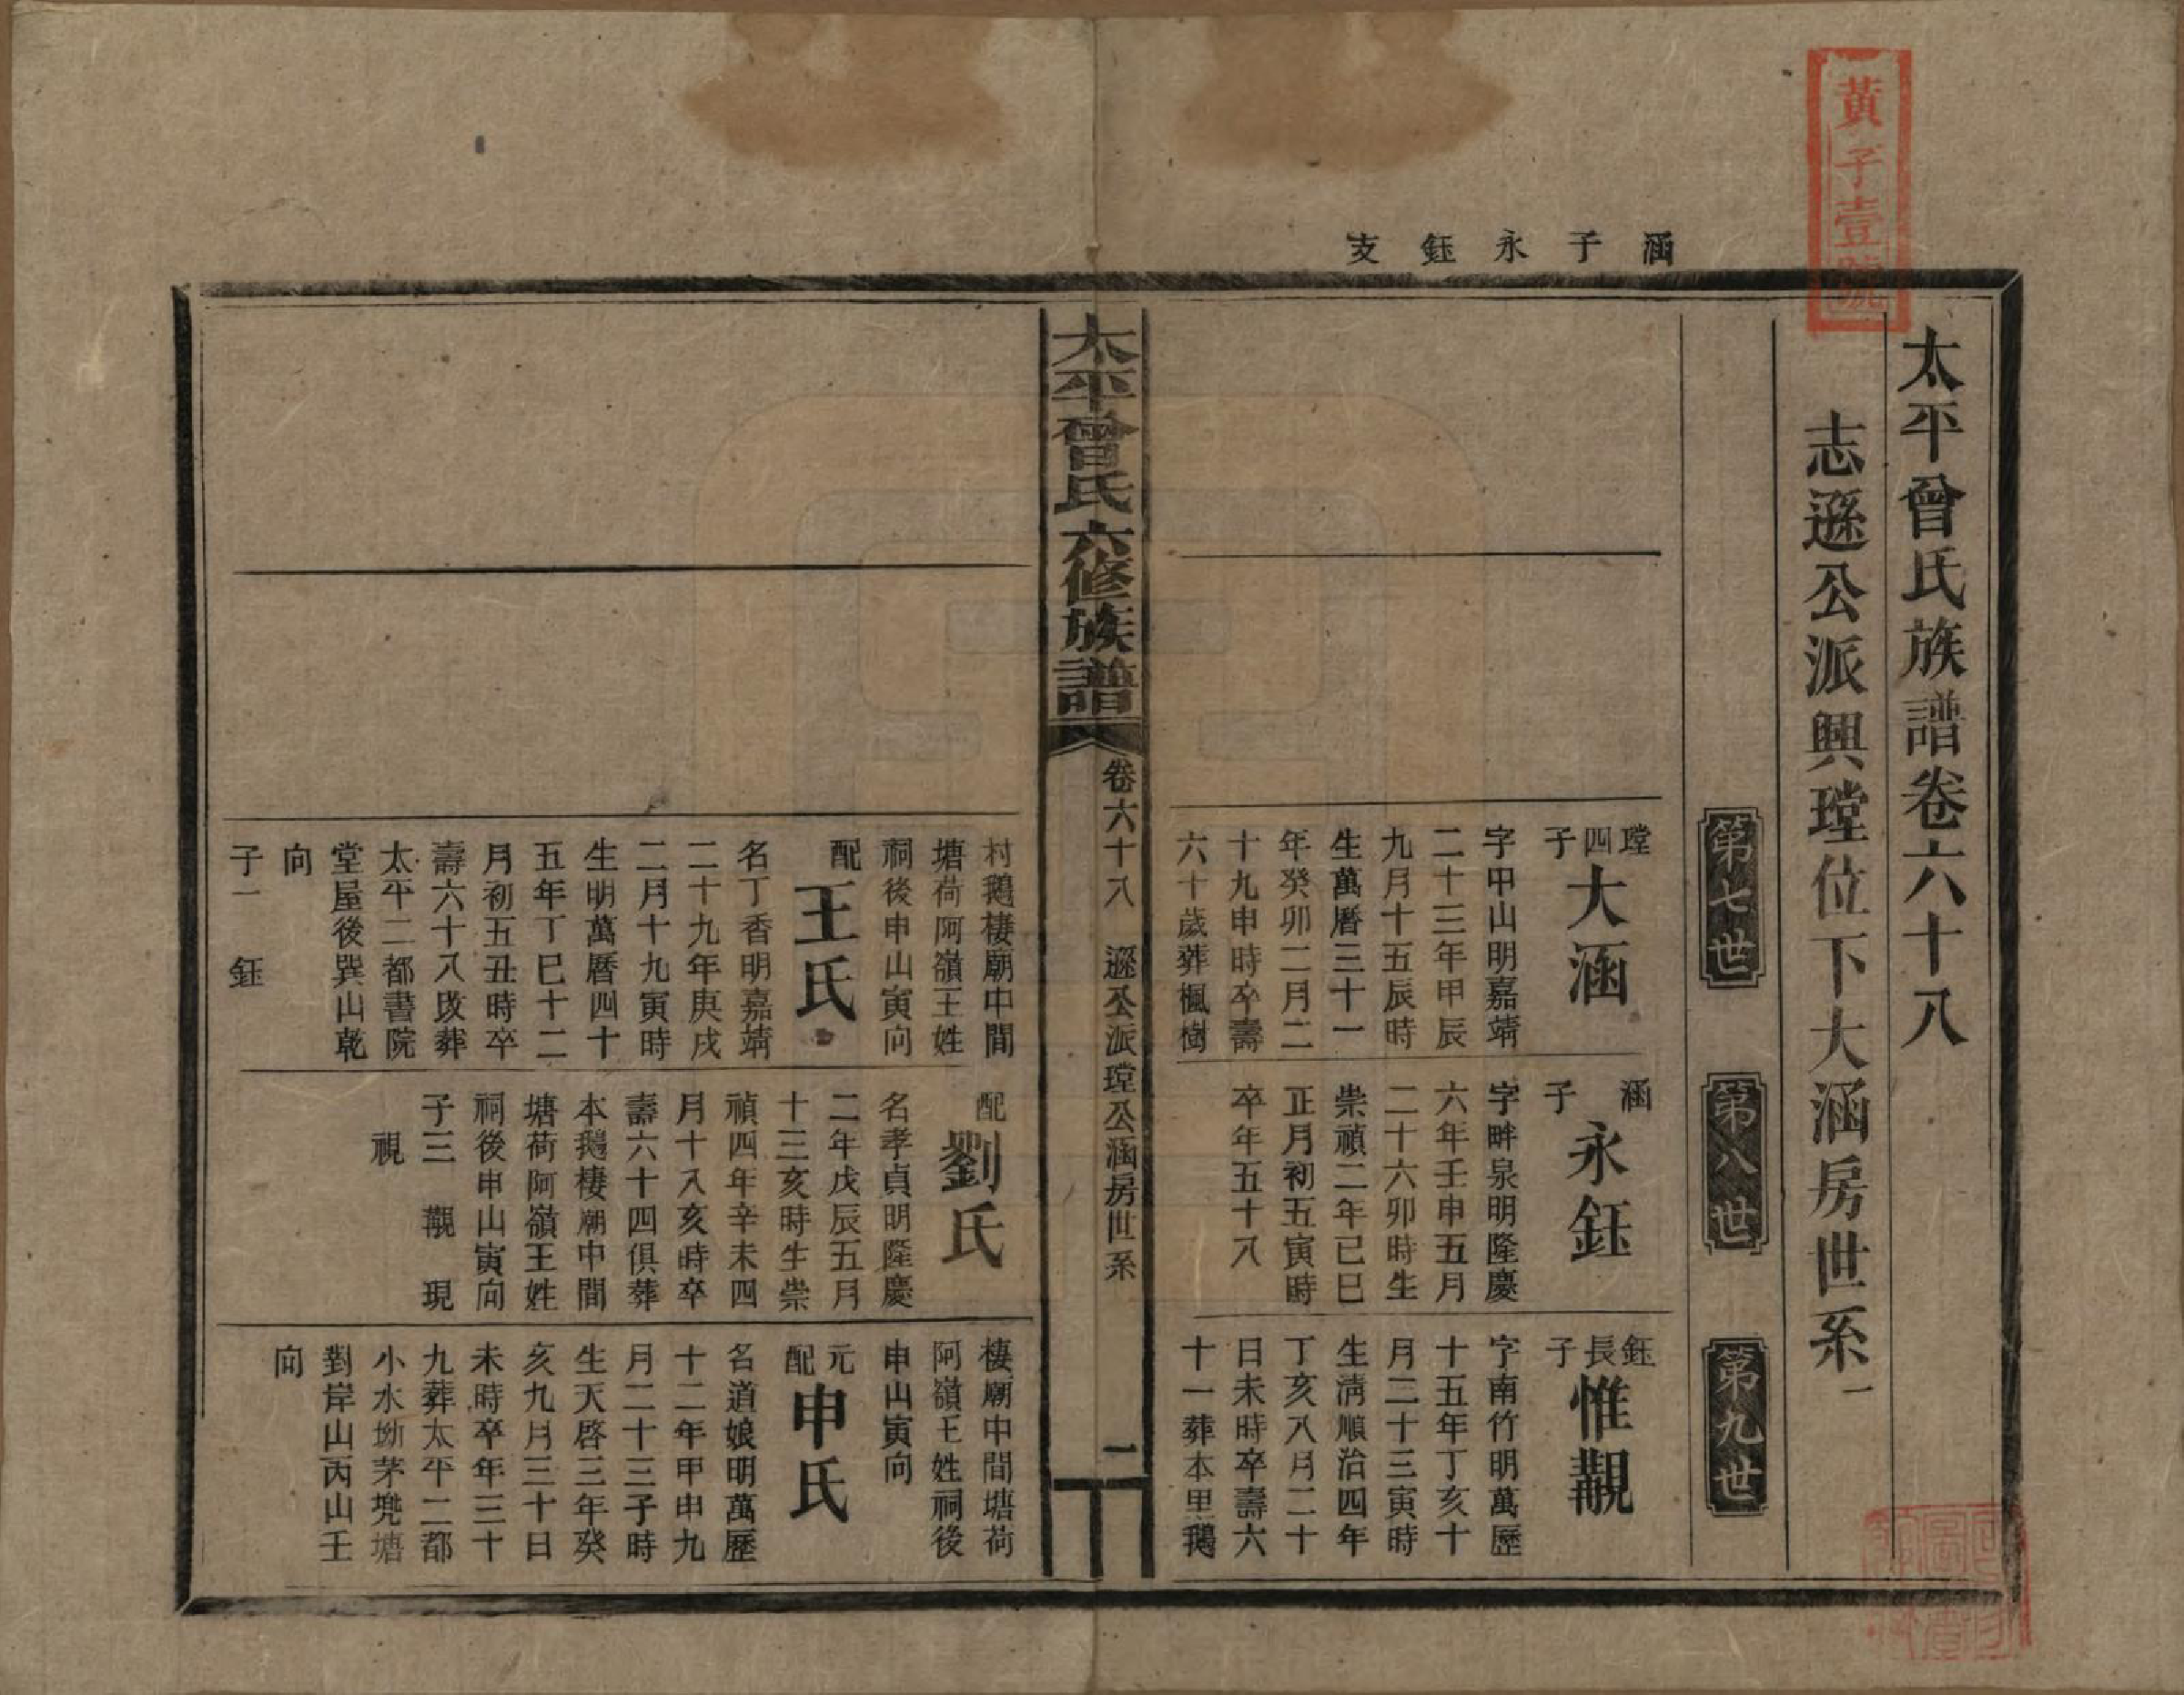 黃子壹號
涵子永鈺支
太平曾氏族譜卷六十八
志遜公派興瑝位下大涵房世系一
第七世
第八世
第九世
瑝四子
大涵
字甲山明嘉靖
二十三年甲辰
九月十五辰時
生萬曆三十一
年癸卯二月二
十九申時卒壽
六十歲葬楓樹
涵子
永鈺
字畔泉明隆慶
六年壬申五月
二十六卯時生
崇禎二年己巳
正月初五寅時
卒年五十八
鈺長子
惟覯
字南竹明萬歷
十五年丁亥十
月二十三寅時
生淸順治四年
丁亥八月二十
日未時卒壽六
十一葬本里鵝
太平曾氏六修族譜
卷六十八
遜公派瑝公涵房世系
二
村鵝棲廟中間
塘荷阿嶺王姓
祠後申山寅向
配
王氏
名丁香明嘉靖
二十九年庚戌
二月十九寅時
生明萬曆四十
五年丁巳十二
月初五丑時卒
壽六十八改葬
太平二都書院
堂屋後巽山乾
向
子一 鈺
配
劉氏
名孝貞明隆慶
二年戊辰五月
十三亥時生崇
禎四年辛未四
月十八亥時卒
壽六十四俱葬
本鵝棲廟中間
塘荷阿嶺王姓
祠後申山寅向
子三 覯 現
視
棲廟中間塘荷
阿嶺王姓祠後
申山寅向
元配
申氏
名道娘明萬歷
十二年甲申九
月二十三子時
生天啓三年癸
亥九月三十日
未時卒年三十
九葬太平二都
小水坳茅塘
對岸山丙山壬
向